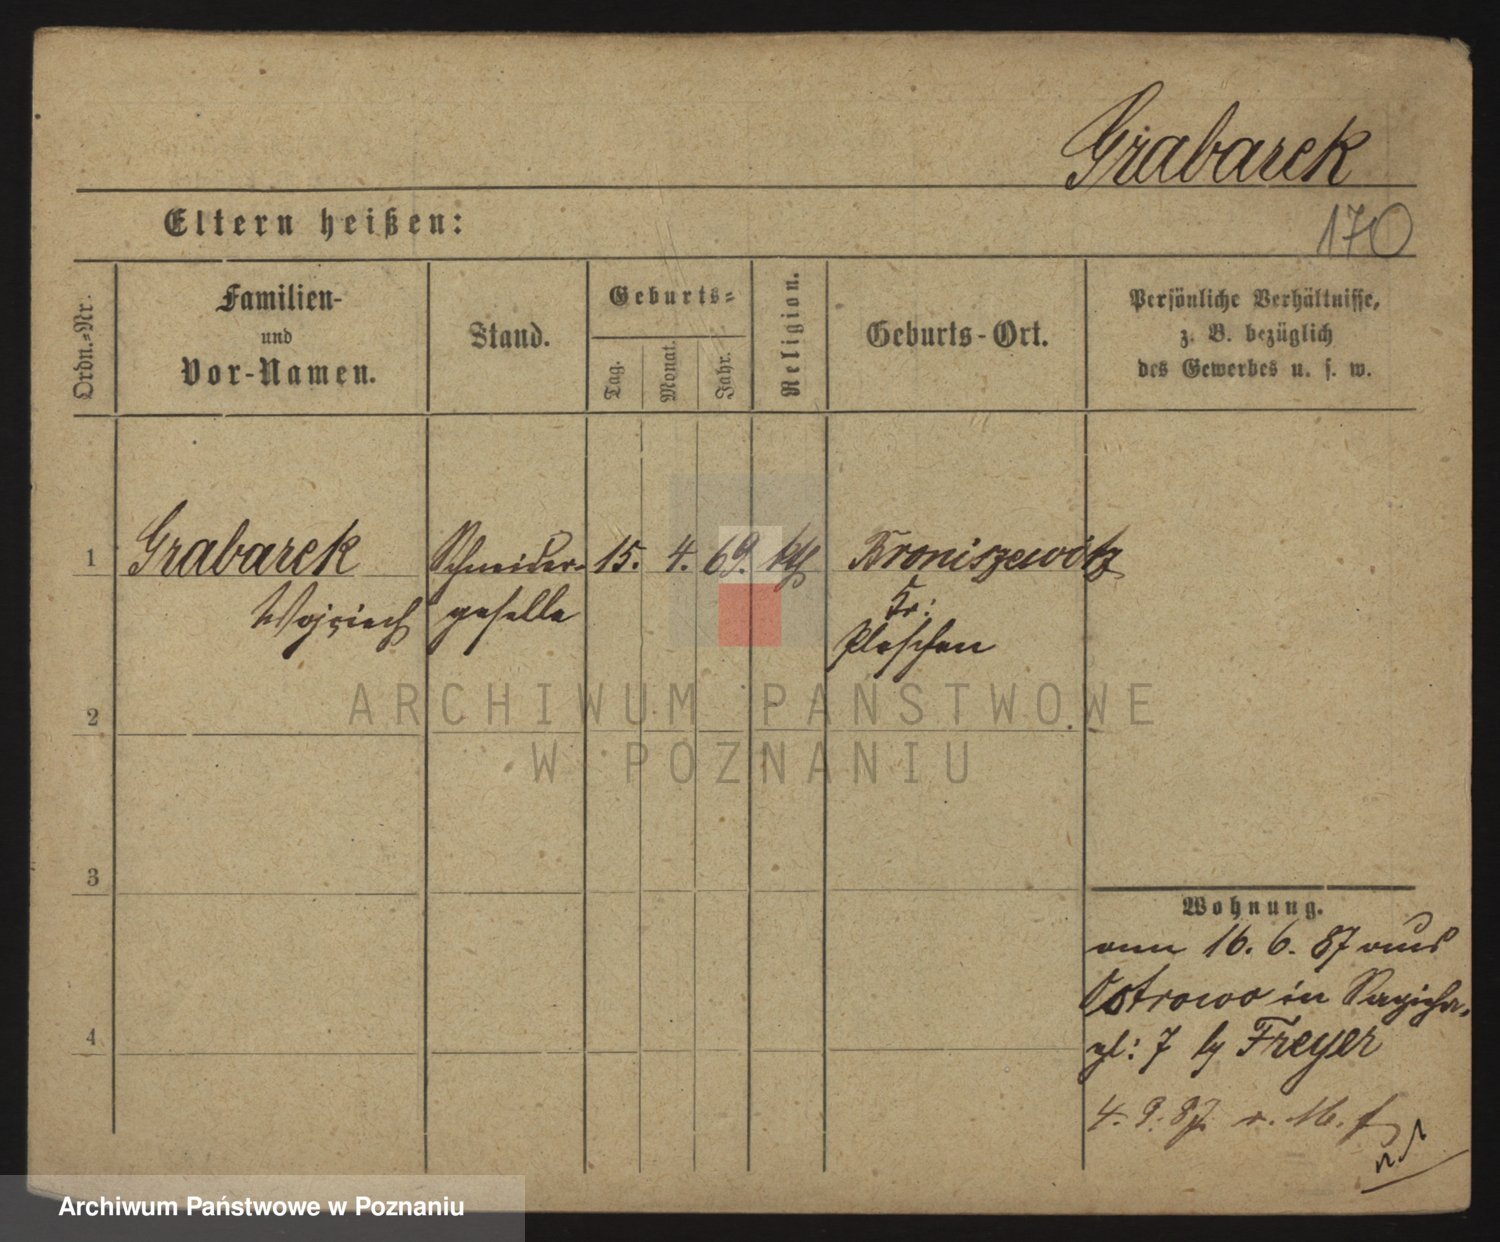 Grabarek
Eltern heißen:
170
Ordn.-Nr.
Familien-
und
Vor-Namen.
Stand.
Geburts-
Tag.
Monat.
Jahr.
Religion.
Geburts-Ort.
Persönliche Verhältnisse,
z. B. bezüglich
des Gewerbes u. s. w.
1
Grabarek
Wojciech
Schneider-
geselle
15.
4.
69.
kth
Broniszewitz
Kr:
Pleschen
2
3
4
Wohnung.
16. 6. 87 aus
Ostrowo in
7 Freyer
4. 9. 87.
ARCHIWUM PAŃSTWOWE
W POZNANIU
Archiwum Państwowe w Poznaniu